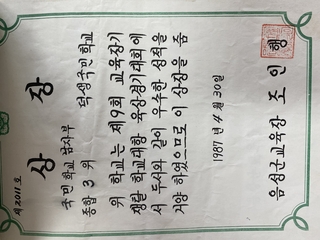 제2011호
상 장
국민학교 남자부
종합 3위
덕생국민학교
위 학교는 제9회 교육장기
쟁탈 학교대항 육상경기대회에
서 두서와 같이 우수한 성적을
거양 하였으므로 이 상장을 줌
1987년 4월 30일
음성군교육장 조 인 행